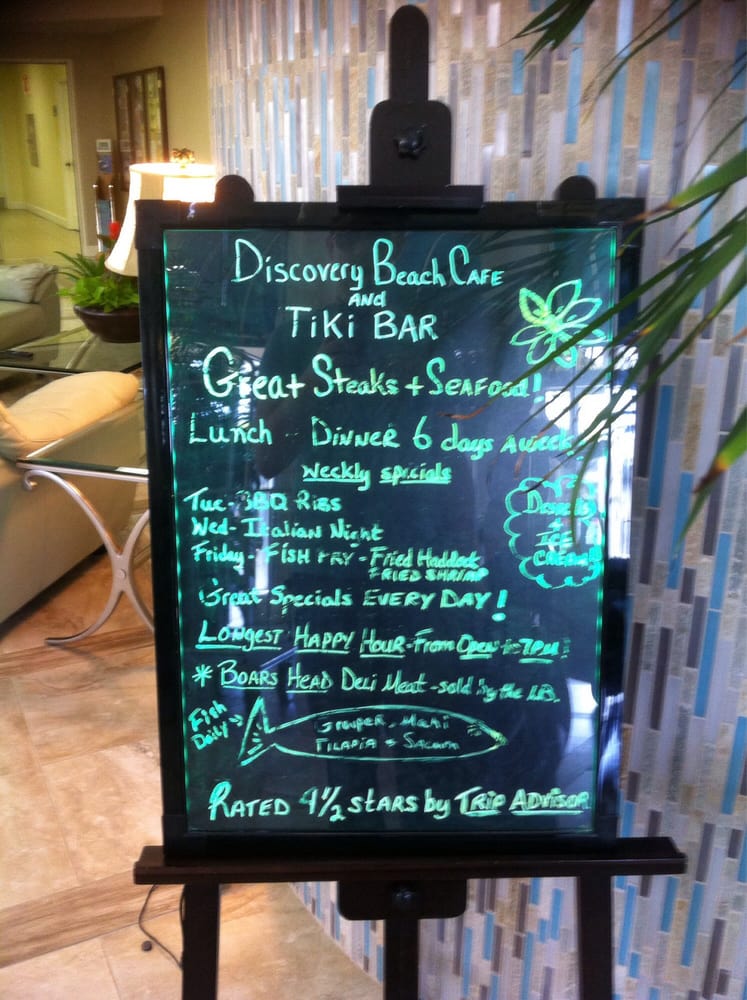 Discovery Beach Cafe
AND
TiKi BAR
Great Steaks + Seafood!
Lunch - Dinner 6 days a week
Weekly specials
Tue - BBQ Ribs
Wed - Italian Night
Friday - FISH FRY - Fried Haddock
FRIED SHRIMP
Desserts
+
ICE
CREAM
Great Specials EVERY DAY!
Longest Happy Hour - From Open to 7PM!
* Boars Head Deli Meat - sold by the LB.
Fish
Daily
Grouper - Mahi
Tilapia &
Rated 4 1/2 stars by Trip Advisor